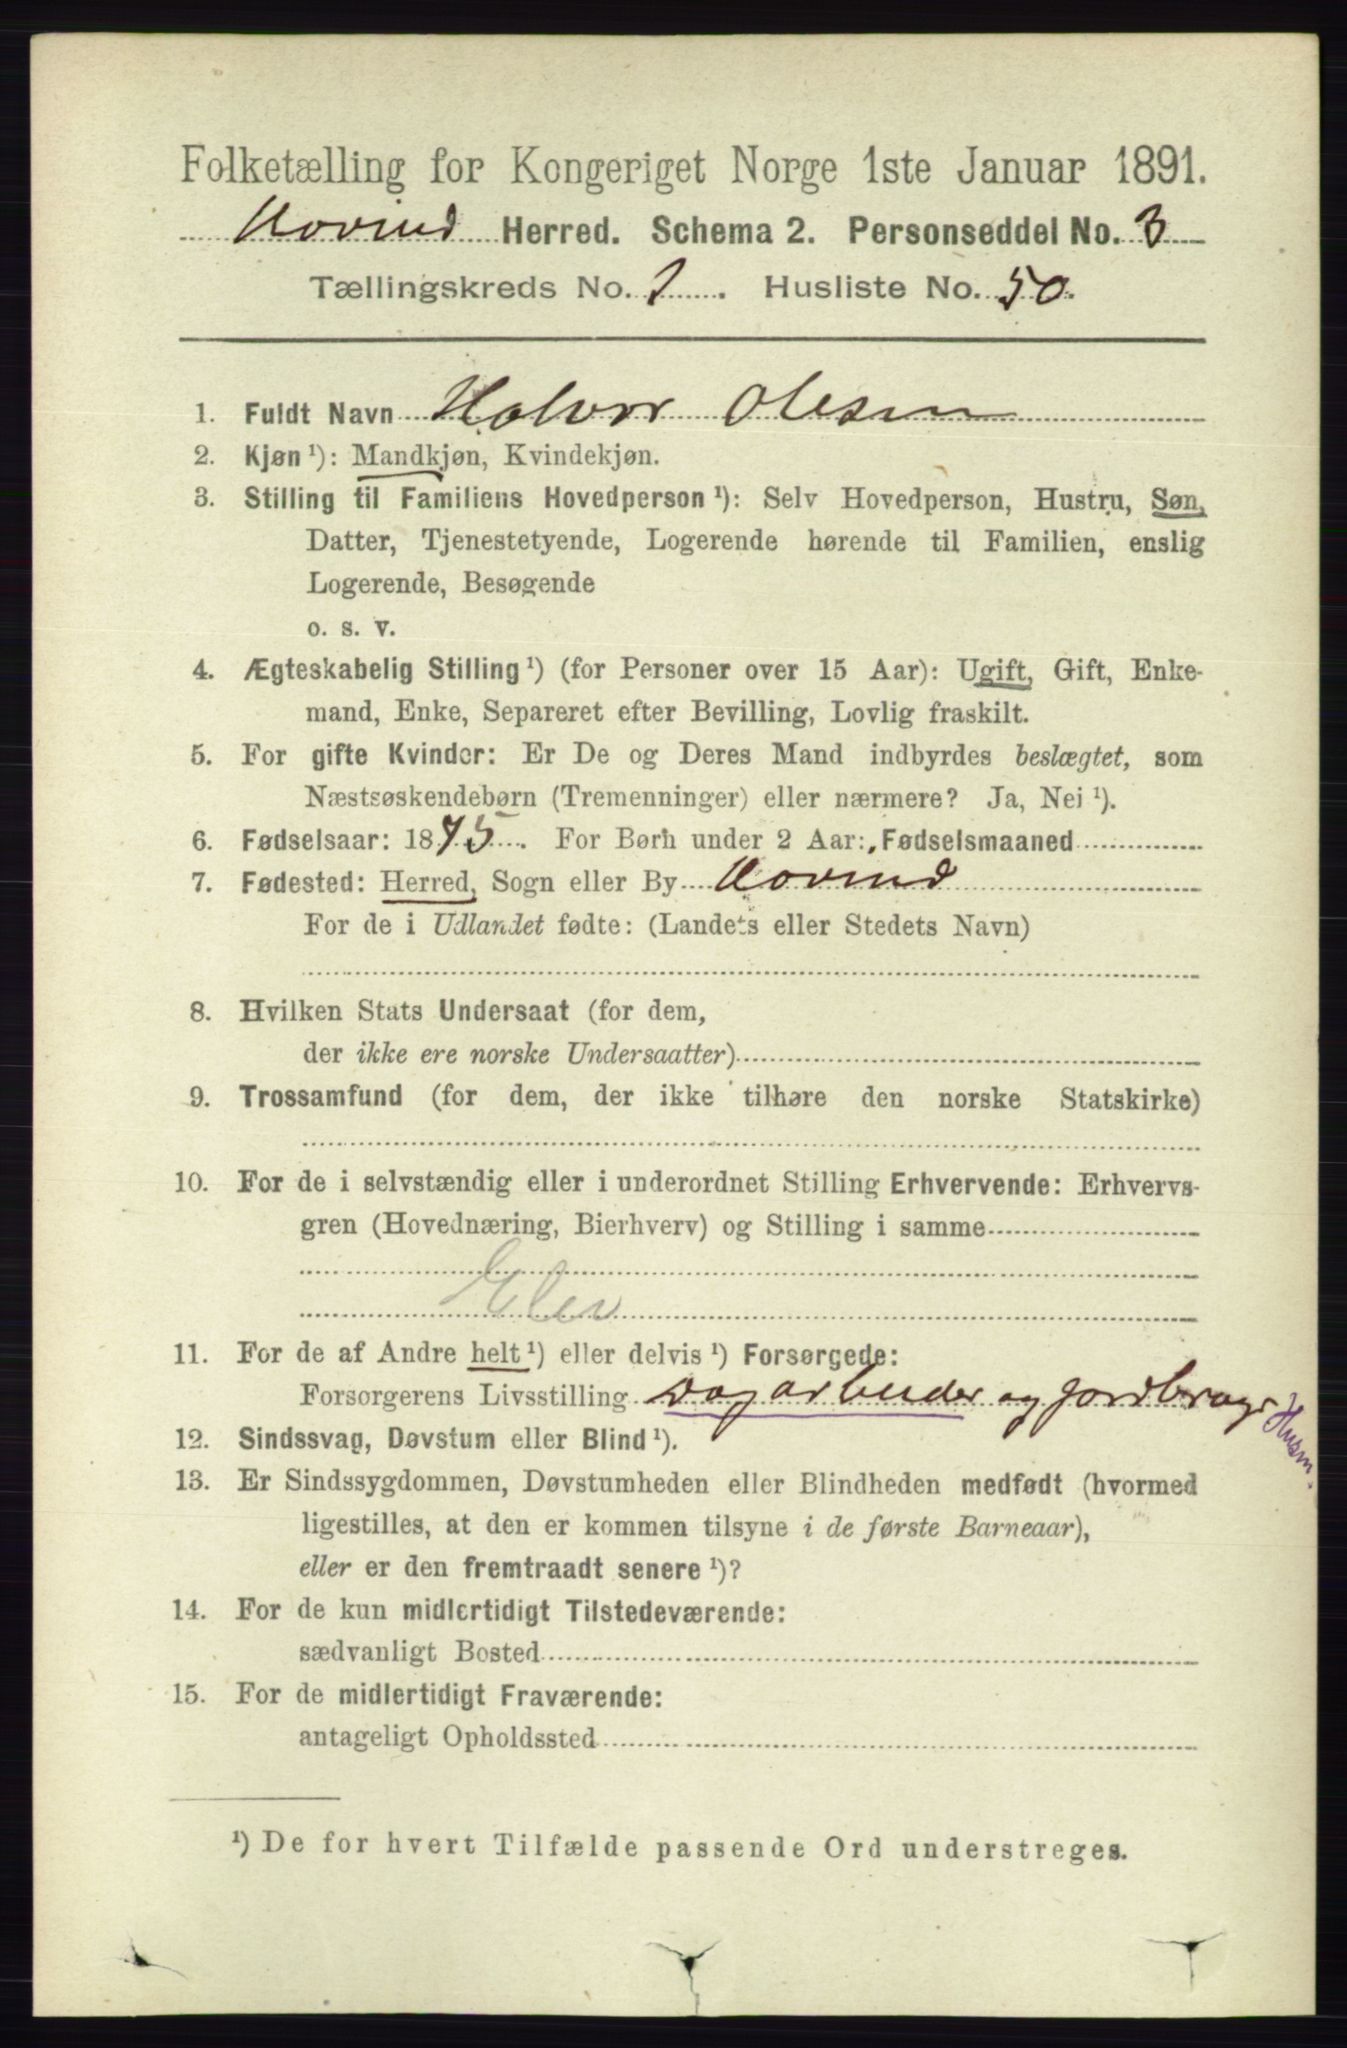 Folketælling for Kongeriget Norge 1ste Januar 1891.
Hovind Herred. Schema 2. Personseddel No. 3
Tællingskreds No. 2. Husliste No. 50.
1. Fuldt Navn Halvor Olesen
2. Kjøn ¹): Mandkjøn, Kvindekjøn.
3. Stilling til Familiens Hovedperson ¹): Selv Hovedperson, Hustru, Søn,
Datter, Tjenestetyende, Logerende hørende til Familien, enslig
Logerende, Besøgende
o. s. v.
4. Ægteskabelig Stilling ¹) (for Personer over 15 Aar): Ugift, Gift, Enke-
mand, Enke, Separeret efter Bevilling, Lovlig fraskilt.
5. For gifte Kvinder: Er De og Deres Mand indbyrdes beslægtet, som
Næstsøskendebørn (Tremenninger) eller nærmere? Ja, Nei ¹).
6. Fødselsaar: 1875. For Børn under 2 Aar: Fødselsmaaned
7. Fødested: Herred, Sogn eller By Hovind
For de i Udlandet fødte: (Landets eller Stedets Navn)
8. Hvilken Stats Undersaat (for dem,
der ikke ere norske Undersaatter)
9. Trossamfund (for dem, der ikke tilhøre den norske Statskirke)
10. For de i selvstændig eller i underordnet Stilling Erhvervende: Erhvervs-
gren (Hovednæring, Bierhverv) og Stilling i samme
Elev
11. For de af Andre helt ¹) eller delvis ¹) Forsørgede:
Forsørgerens Livsstilling Dagarbeider og Jordbrugs Husm.
12. Sindssvag, Døvstum eller Blind ¹).
13. Er Sindssygdommen, Døvstumheden eller Blindheden medfødt (hvormed
ligestilles, at den er kommen tilsyne i de første Barneaar),
eller er den fremtraadt senere ¹)?
14. For de kun midlertidigt Tilstedeværende:
sædvanligt Bosted
15. For de midlertidigt Fraværende:
antageligt Opholdssted
¹) De for hvert Tilfælde passende Ord understreges.